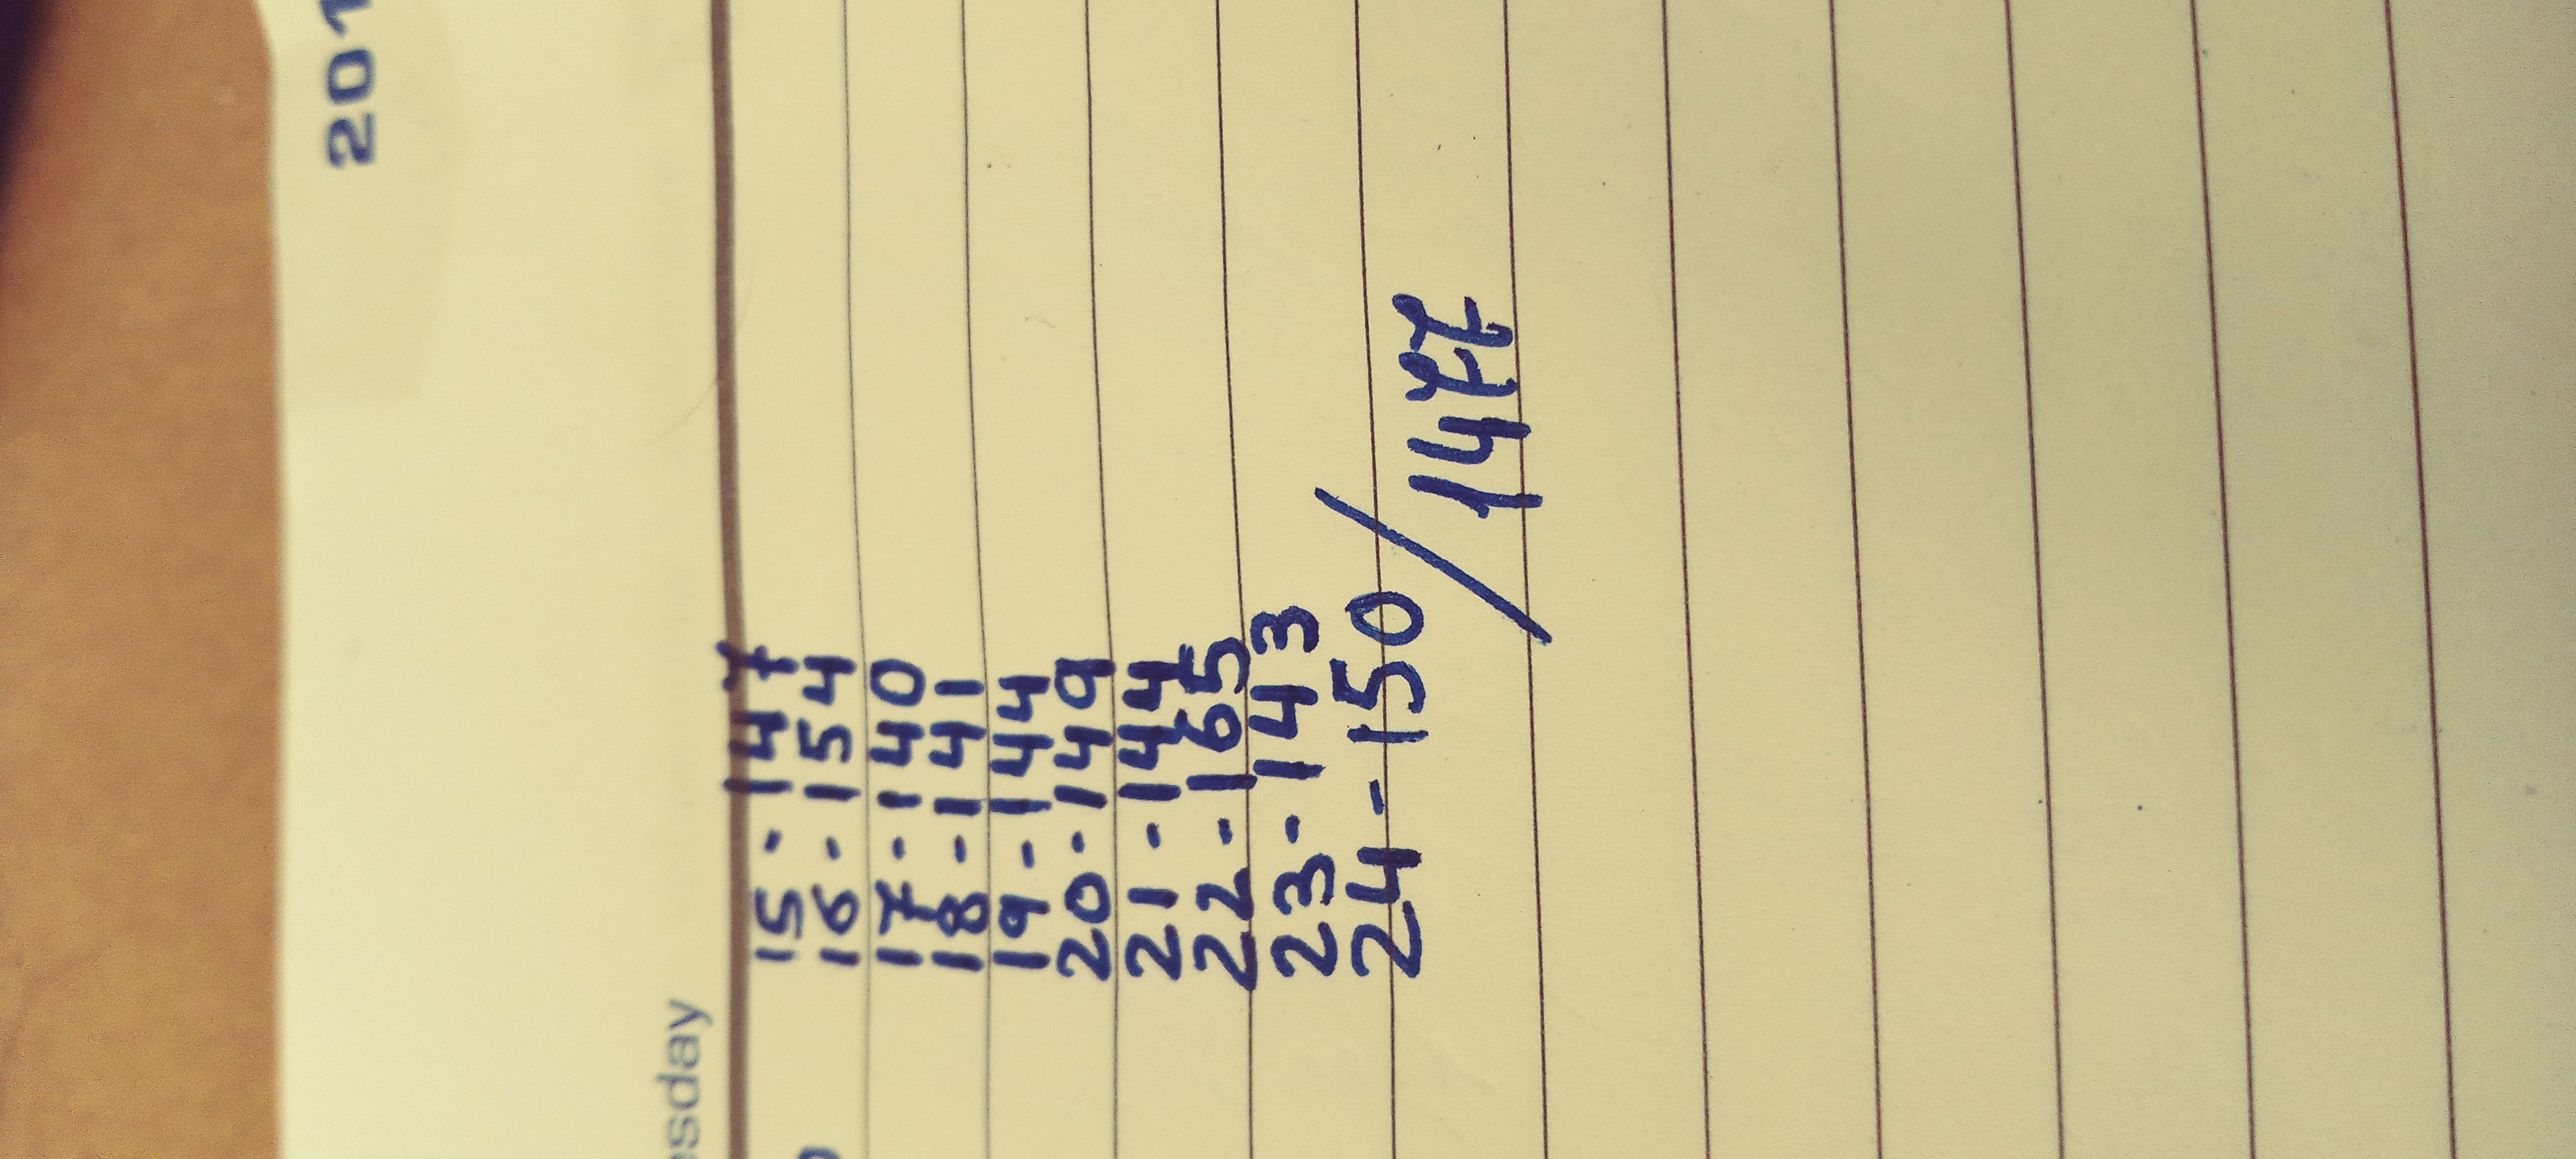 201
sday
15 - 147
16 - 154
17 - 140
18 - 141
19 - 144
20 - 149
21 - 144
22 - 165
23 - 143
24 - 150 / 1477